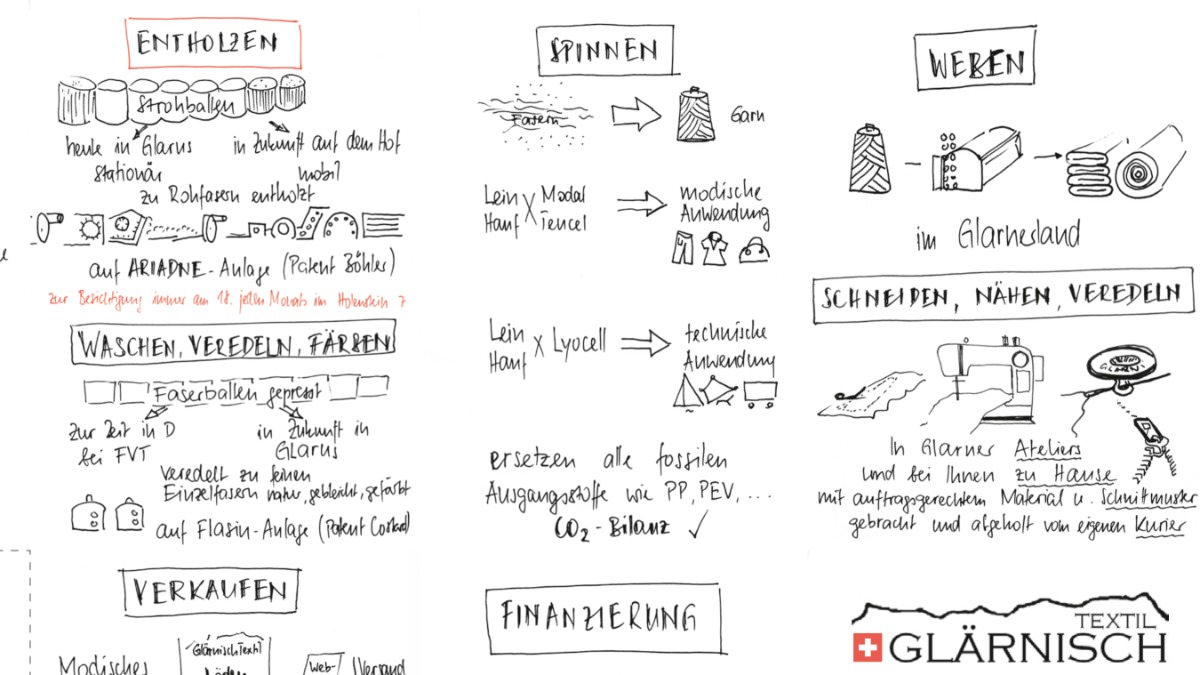 ENTHOLZEN
Strohballen
heute in Glarus
stationär
in Zukunft auf dem Hof
mobil
zu Rohfasern entholzt
auf ARIADNE-Anlage (Patent Böhler)
zur Besichtigung immer am 18. jeden Monats im Holenstein 7
WASCHEN, VEREDELN, FÄRBEN
Faserballen gepresst
zur Zeit in D
bei FVT
in Zukunft in
GLARUS
veredelt zu feinen
Einzelfasern natur, gebleicht, gefärbt
auf Flasin-Anlage (Patent
VERKAUFEN
Modisches
GlärnischTextil
Läden
Web-
Versand
SPINNEN
Fasern
Garn
Lein
Hanf
X
Modal
Tencel
modische
Anwendung
Lein
Hanf
X Lyocell
technische
Anwendung
ersetzen alle fossilen
Ausgangsstoffe wie PP, PEV, ...
CO2-Bilanz ✓
FINANZIERUNG
WEBEN
im Glarnerland
SCHNEIDEN, NÄHEN, VEREDELN
In Glarner Ateliers
und bei Ihnen zu Hause
mit auftragsgerechtem Material u. Schnittmuster
gebracht und abgeholt vom eigenen Kurier
TEXTIL
GLÄRNISCH